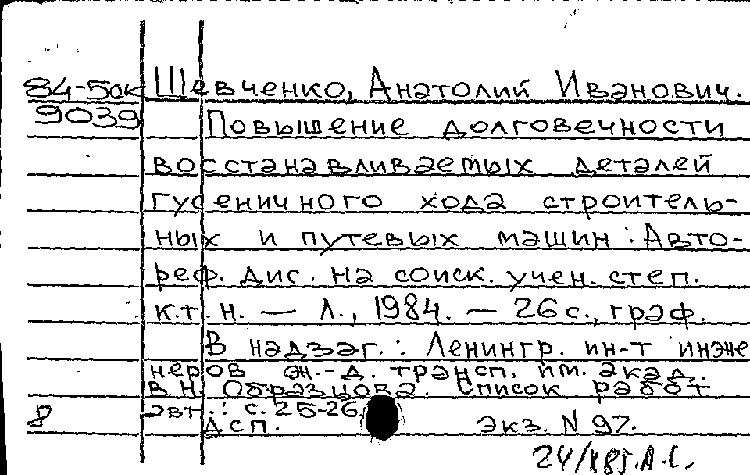 84-5ок Шевченко, Анатолий Иванович.
9039 Повышение долговечности
восстанавливаемых деталей
гусеничного хода строитель-
ных и путевых машин : Авто-
реф. дис. на соиск. учен. степ.
к.т.н. — Л., 1984. — 26 с., граф.
В надзаг.: Ленингр. ин-т инже
неров ж.-д. трансп. им. акад.
В Н Образцова. Список работ
авт.: с. 25-26
8 Дсп. Экз. N 97.